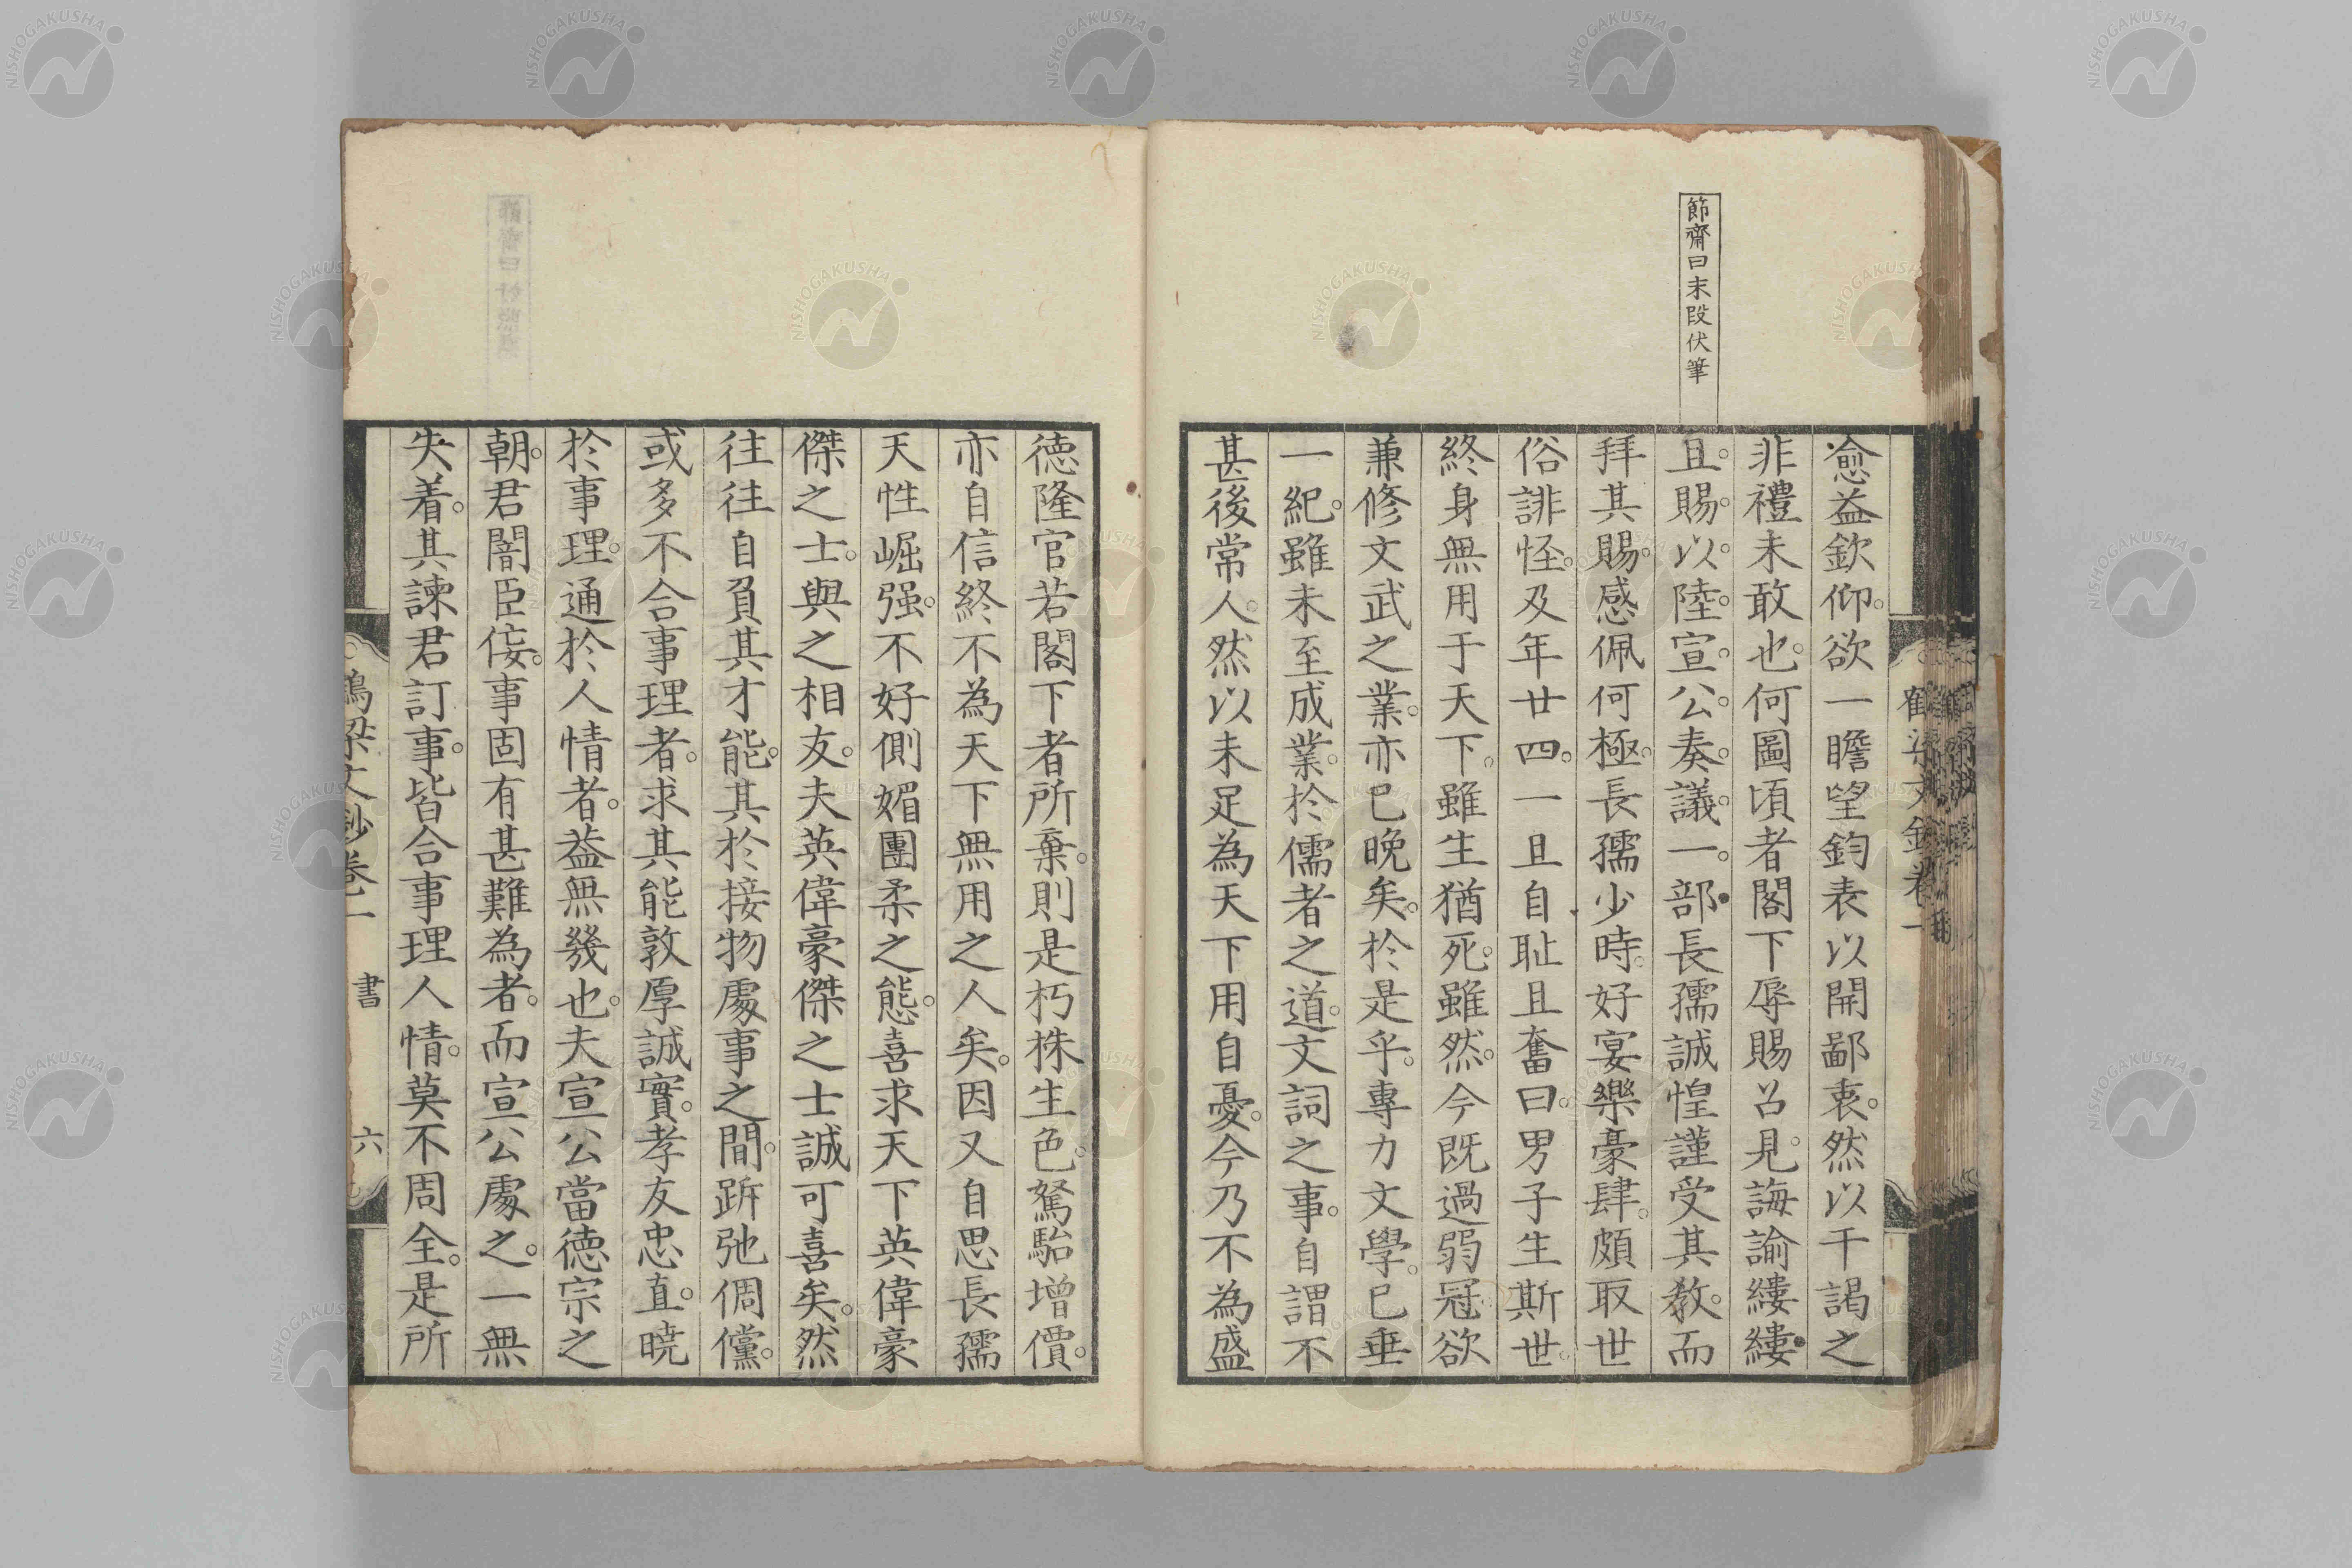 節齋曰末段伏筆
愈益欽仰。欲一瞻望鈞表以開鄙衷。然以干謁之
非禮未敢也。何圖頃者閣下辱賜召見。誨諭縷縷。
且。賜。以。陸。宣。公。奏。議。一。部。長孺誠惶謹受其教。而
拜其賜。感佩何極。長孺少時。好宴樂豪肆。頗取世
俗誹怪。及年廿四。一旦自耻且奮曰。男子生斯世。
終身無用于天下。雖生猶死。雖然。今既過弱冠欲
兼修文武之業。亦已晩矣。於是乎。專力文學。已垂
一紀。雖未至成業。於儒者之道。文詞之事。自謂不
甚後常人。然以未足為天下用自憂。今乃不為盛
德隆官若閣下者所棄。則是朽株生色。駑駘增價。
亦自信終不為天下無用之人矣。因又自思長孺
天性崛强。不好側媚團柔之態。喜求天下英偉豪
傑之士。與之相友。夫英偉豪傑之士誠可喜矣。然
往往自負其才能。其於接物處事之間。跅弛倜儻。
或多不合事理者。求其能敦厚誠實。孝友忠直。暁
於事理。通於人情者。蓋無幾也。夫宣公當德宗之
朝。君闇臣侫。事固有甚難為者。而宣公處之。一無
失着。其諫君訂事。皆合事理人情。莫不周全。是所
鶴梁文鈔卷一 書 六
NISHOGAKUSHA